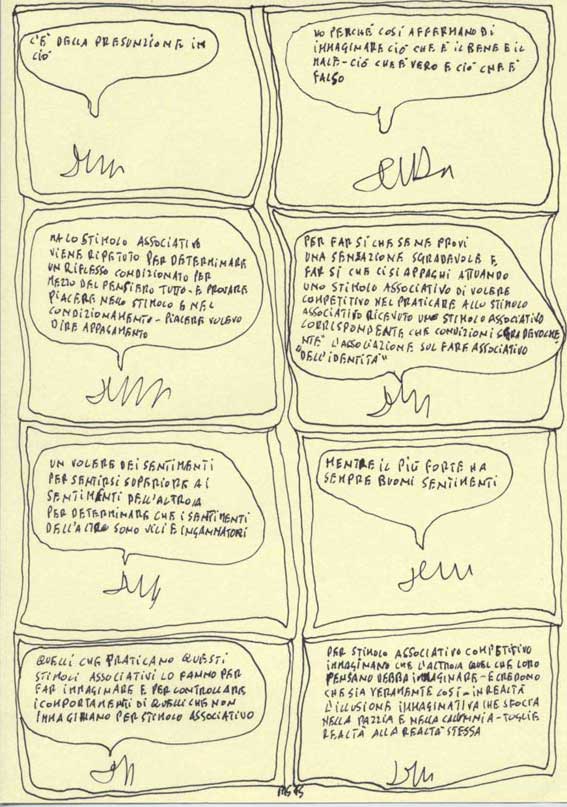 C'È DELLA PRESUNZIONE IN
CIÒ
NO PERCHÈ COSÌ AFFERMANO DI
IMMAGINARE CIÒ CHE È IL BENE E IL
MALE - CIÒ CHE È VERO E CIÒ CHE È
FALSO
MA LO STIMOLO ASSOCIATIVO
VIENE RIPETUTO PER DETERMINARE
UN RIFLESSO CONDIZIONATO PER
MEZZO DEL PENSIERO TUTTO - E PROVARE
PIACERE NELLO STIMOLO E NEL
CONDIZIONAMENTO - PIACERE VOLEVO
DIRE APPAGAMENTO
PER FAR SI CHE SE NE PROVI
UNA SENSAZIONE SGRADEVOLE E
FAR SI CHE CI SI APPAGHI ATTUANDO
UNO STIMOLO ASSOCIATIVO DI VOLERE
COMPETITIVO NEL PRATICARE ALLO STIMOLO
ASSOCIATIVO RICEVUTO UNO STIMOLO ASSOCIATIVO
CORRISPONDENTE CHE CONDIZIONI SGRADEVOLME
NTE L'ASSOCIAZIONE SUL FARE ASSOCIATIVO
"DELL'IDENTITÀ"
UN VOLERE DEI SENTIMENTI
PER SENTIRSI SUPERIORE AI
SENTIMENTI DELL'ALTRO/A
PER DETERMINARE CHE I SENTIMENTI
DELL'ALTRO SONO VILI E INGANNATORI
MENTRE IL PIÙ FORTE HA
SEMPRE BUONI SENTIMENTI
QUELLI CHE PRATICANO QUESTI
STIMOLI ASSOCIATIVI LO FANNO PER
FAR IMMAGINARE E PER CONTROLLARE
I COMPORTAMENTI DI QUELLI CHE NON
IMMAGINANO PER STIMOLO ASSOCIATIVO
PER STIMOLO ASSOCIATIVO COMPETITIVO
IMMAGINANO CHE L'ALTRO/A QUEL CHE LORO
PENSANO DEBBA IMMAGINARE - E CREDONO
CHE SIA VERAMENTE COSÌ - IN REALTÀ
L'ILLUSIONE IMMAGINATIVA CHE SFOCIA
NELLA PAZZIA E NELLA CALUNNIA - TOGLIE
REALTÀ ALLA REALTÀ STESSA